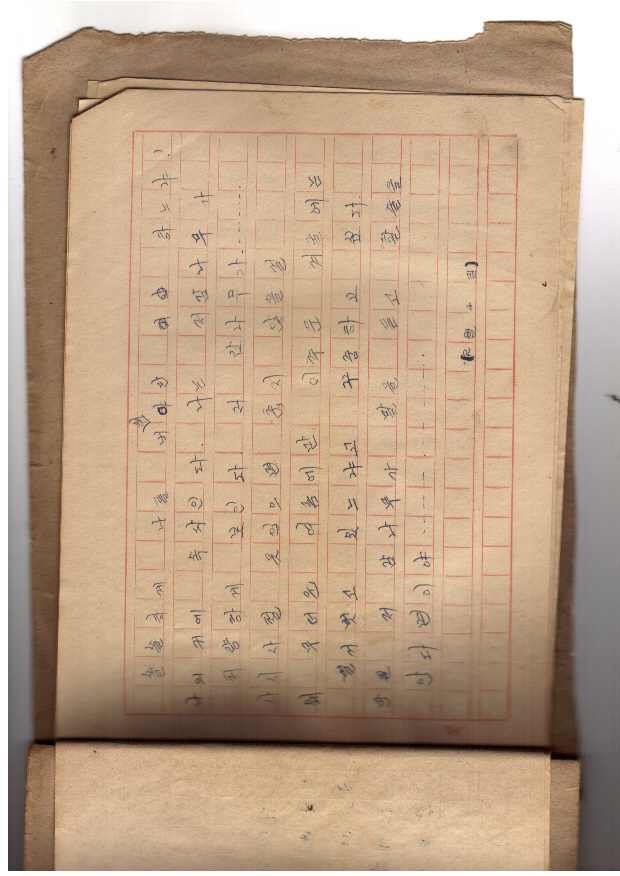 쓸쓸하게 나를 하느냐!
나의 귀에 속삭인다. 나는 저감나무가
처량하게 보인다. 저 감나무가........
사시사철 옷입으면 춥지 않을걸
왜 무더운 여름에만 이추운 겨울에는
벌거벗고 있느냐고 꾸중하고 싶다.
만일 저 감나무가 말을 듣고 할줄을
안다면이야............
(12월 4일)